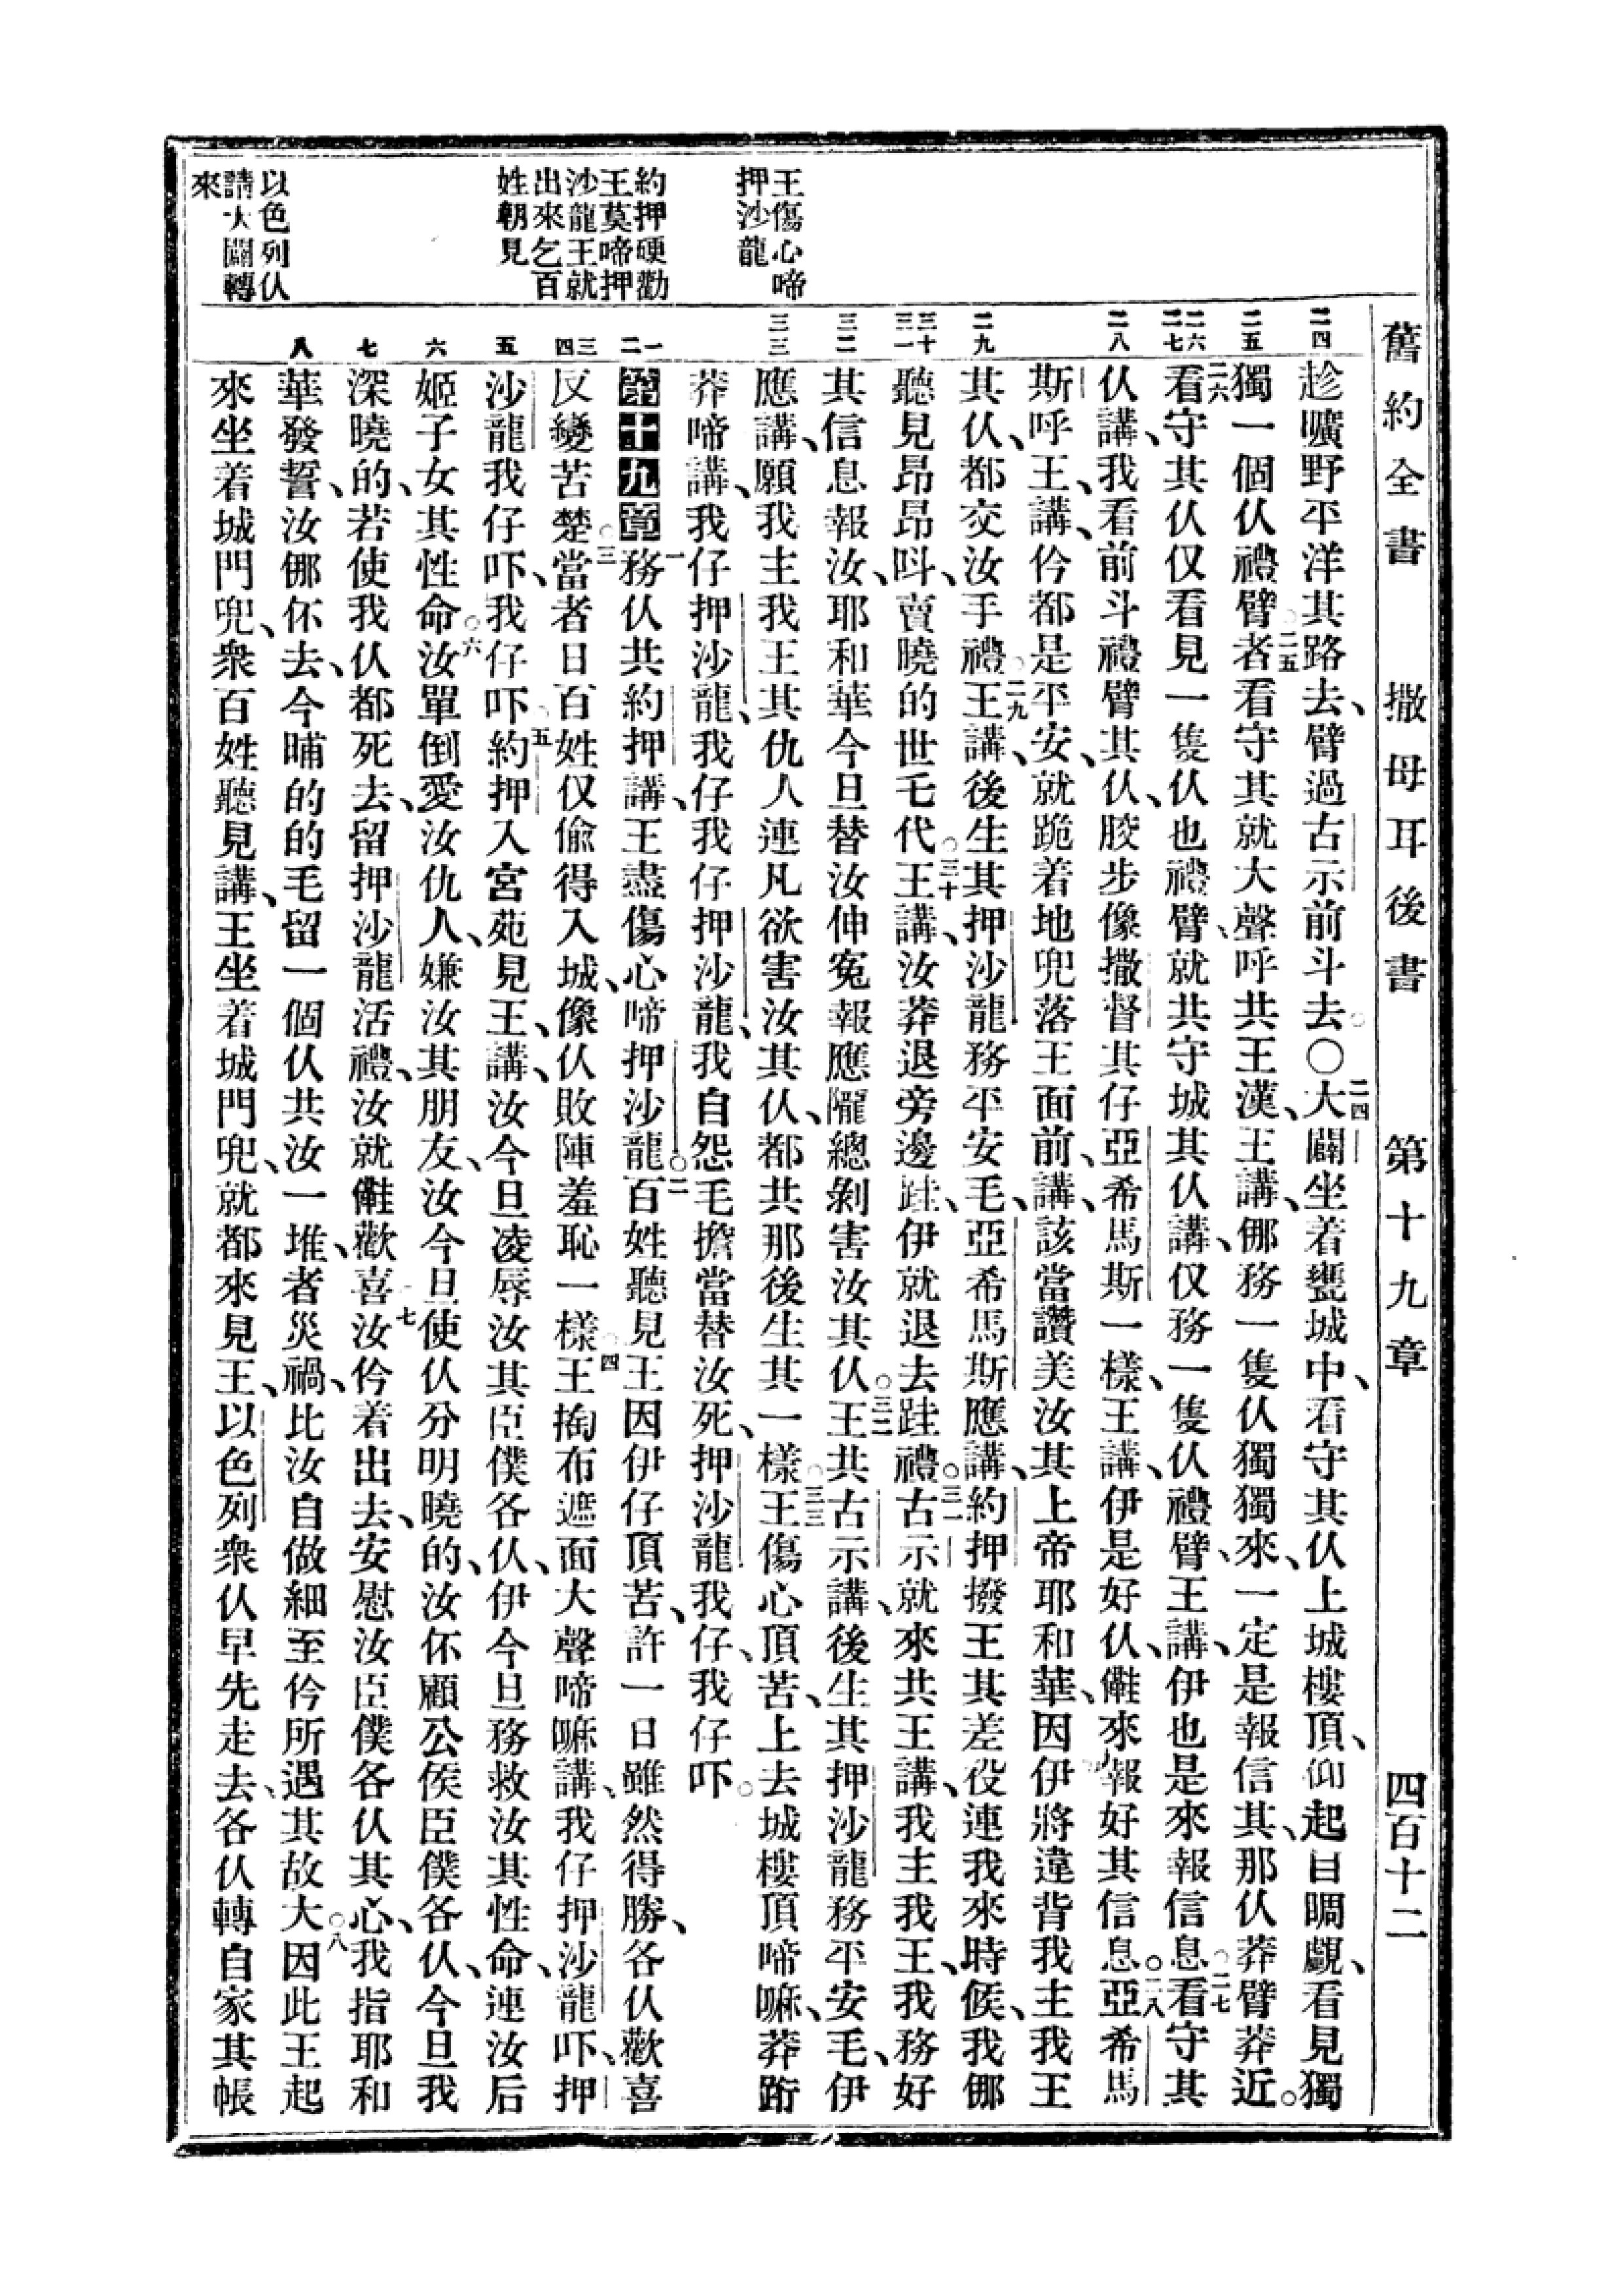 舊約全書　撒母耳後書　第十九章　四百十二
王傷心啼
押沙龍
約押硬勸
王莫啼押
沙龍王就
出來乞百
姓朝見
以色列仈
請大闢轉
來
二四
二五
二六
二七
二八
二九
三十
三一
三二
三三
一
二
三
四
五
六
七
八
趁曠野平洋其路去、臂過古示前斗去。○二四大闢坐着甕城中、看守其仈上城樓頂、仰起目睭覷、看見獨
獨一個仈禮臂。二五者看守其就大聲呼共王漢、王講、㑚務一隻仈獨獨來、一定是報信其、那仈莽臂莽近。
二六看守其仈仅看見一隻仈也禮臂、就共守城其仈講、仅務一隻仈禮臂、王講、伊也是來報信息。二七看守其
仈講、我看前斗禮臂其仈、骹步像撒督其仔亞希馬斯一樣、王講、伊是好仈、㒁來報好其信息。二八亞希馬
斯呼王、講、仱都是平安、就跪着地兜落王面前、講、該當讚美汝其上帝耶和華、因伊將違背我主我王
其仈、都交汝手禮。二九王講、後生其押沙龍務平安毛、亞希馬斯應講、約押撥王其差役連我來時候、我㑚
聽見昂昂呌、賣曉的世乇代。三十王講、汝莽退旁邊跬、伊就退去跬禮。三一古示就來共王講、我主我王、我務好
其信息報汝、耶和華今旦替汝伸寃報應隴總剝害汝其仈。三二王共古示講、後生其押沙龍務平安毛、伊
應講、願我主我王其仇人連凡欲害汝其仈、都共那後生其一樣。三三王傷心頂苦、上去城樓頂啼嘛、莽跲
莽啼講、我仔押沙龍、我仔我仔押沙龍、我自怨毛擔當替汝死、押沙龍我仔、我仔吓。
第十九章一務仈共約押講、王盡傷心啼押沙龍。二百姓聽見王因伊仔頂苦、許一日雖然得勝、各仈歡喜
反變苦楚。三當者日百姓仅偷得入城、像仈敗陣羞恥一樣。四王掏布遮面大聲啼嘛講、我仔押沙龍吓、押
沙龍我仔吓、我仔吓。五約押入宮苑見王、講、汝今旦凌辱汝其臣僕各仈、伊今旦務救汝其性命、連汝后
姬子女其性命。六汝單倒愛汝仇人、嫌汝其朋友、汝今旦使仈分明曉的、汝伓顧公侯臣僕各仈、今旦我
深曉的、若使我仈都死去、留押沙龍活禮、汝就㒁歡喜。七汝仱着出去、安慰汝臣僕各仈其心、我指耶和
華發誓、汝㑚伓去、今晡的的毛留一個仈共汝一堆、者災禍、比汝自做細至仱所遇其故大。八因此王起
來坐着城門兜、衆百姓聽見講、王坐着城門兜、就都來見王、以色列衆仈早先走去、各仈轉自家其帳